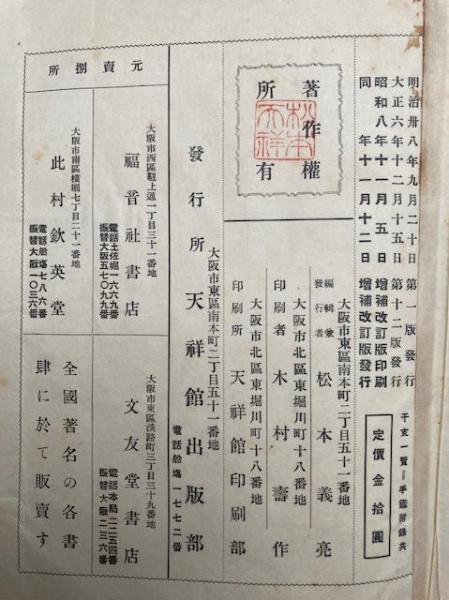 明治卅八年九月二十日 第一版發行
大正六年十二月十五日 第十二版發行
昭和八年十一月五日 增補改訂版印刷
同 年十一月十二日 增補改訂版發行
干支一覽=手鑑附錄共
定價金拾圓
著作權
所有
大阪市東區南本町二丁目五十一番地
編輯兼
發行者 松本義亮
大阪市北區東堀川町十八番地
印刷者 木村壽作
大阪市北區東堀川町十八番地
印刷所 天祥館印刷部
大阪市東區南本町二丁目五十一番地
發行所 天祥館出版部
電話船場一七七二番
元賣捌所
大阪市西區靱上通一丁目三十一番地
福音社書店
電話土佐堀一六六九番
振替大阪五七〇九九番
大阪市東區淡路町三丁目三十九番地
文友堂書店
電話本局二二五四番
振替大阪二三六番
大阪市南區橫堀七丁目二十一番地
此村欽英堂
電話船場七八六番
振替大阪一〇三六番
全國著名の各書
肆に於て販賣す